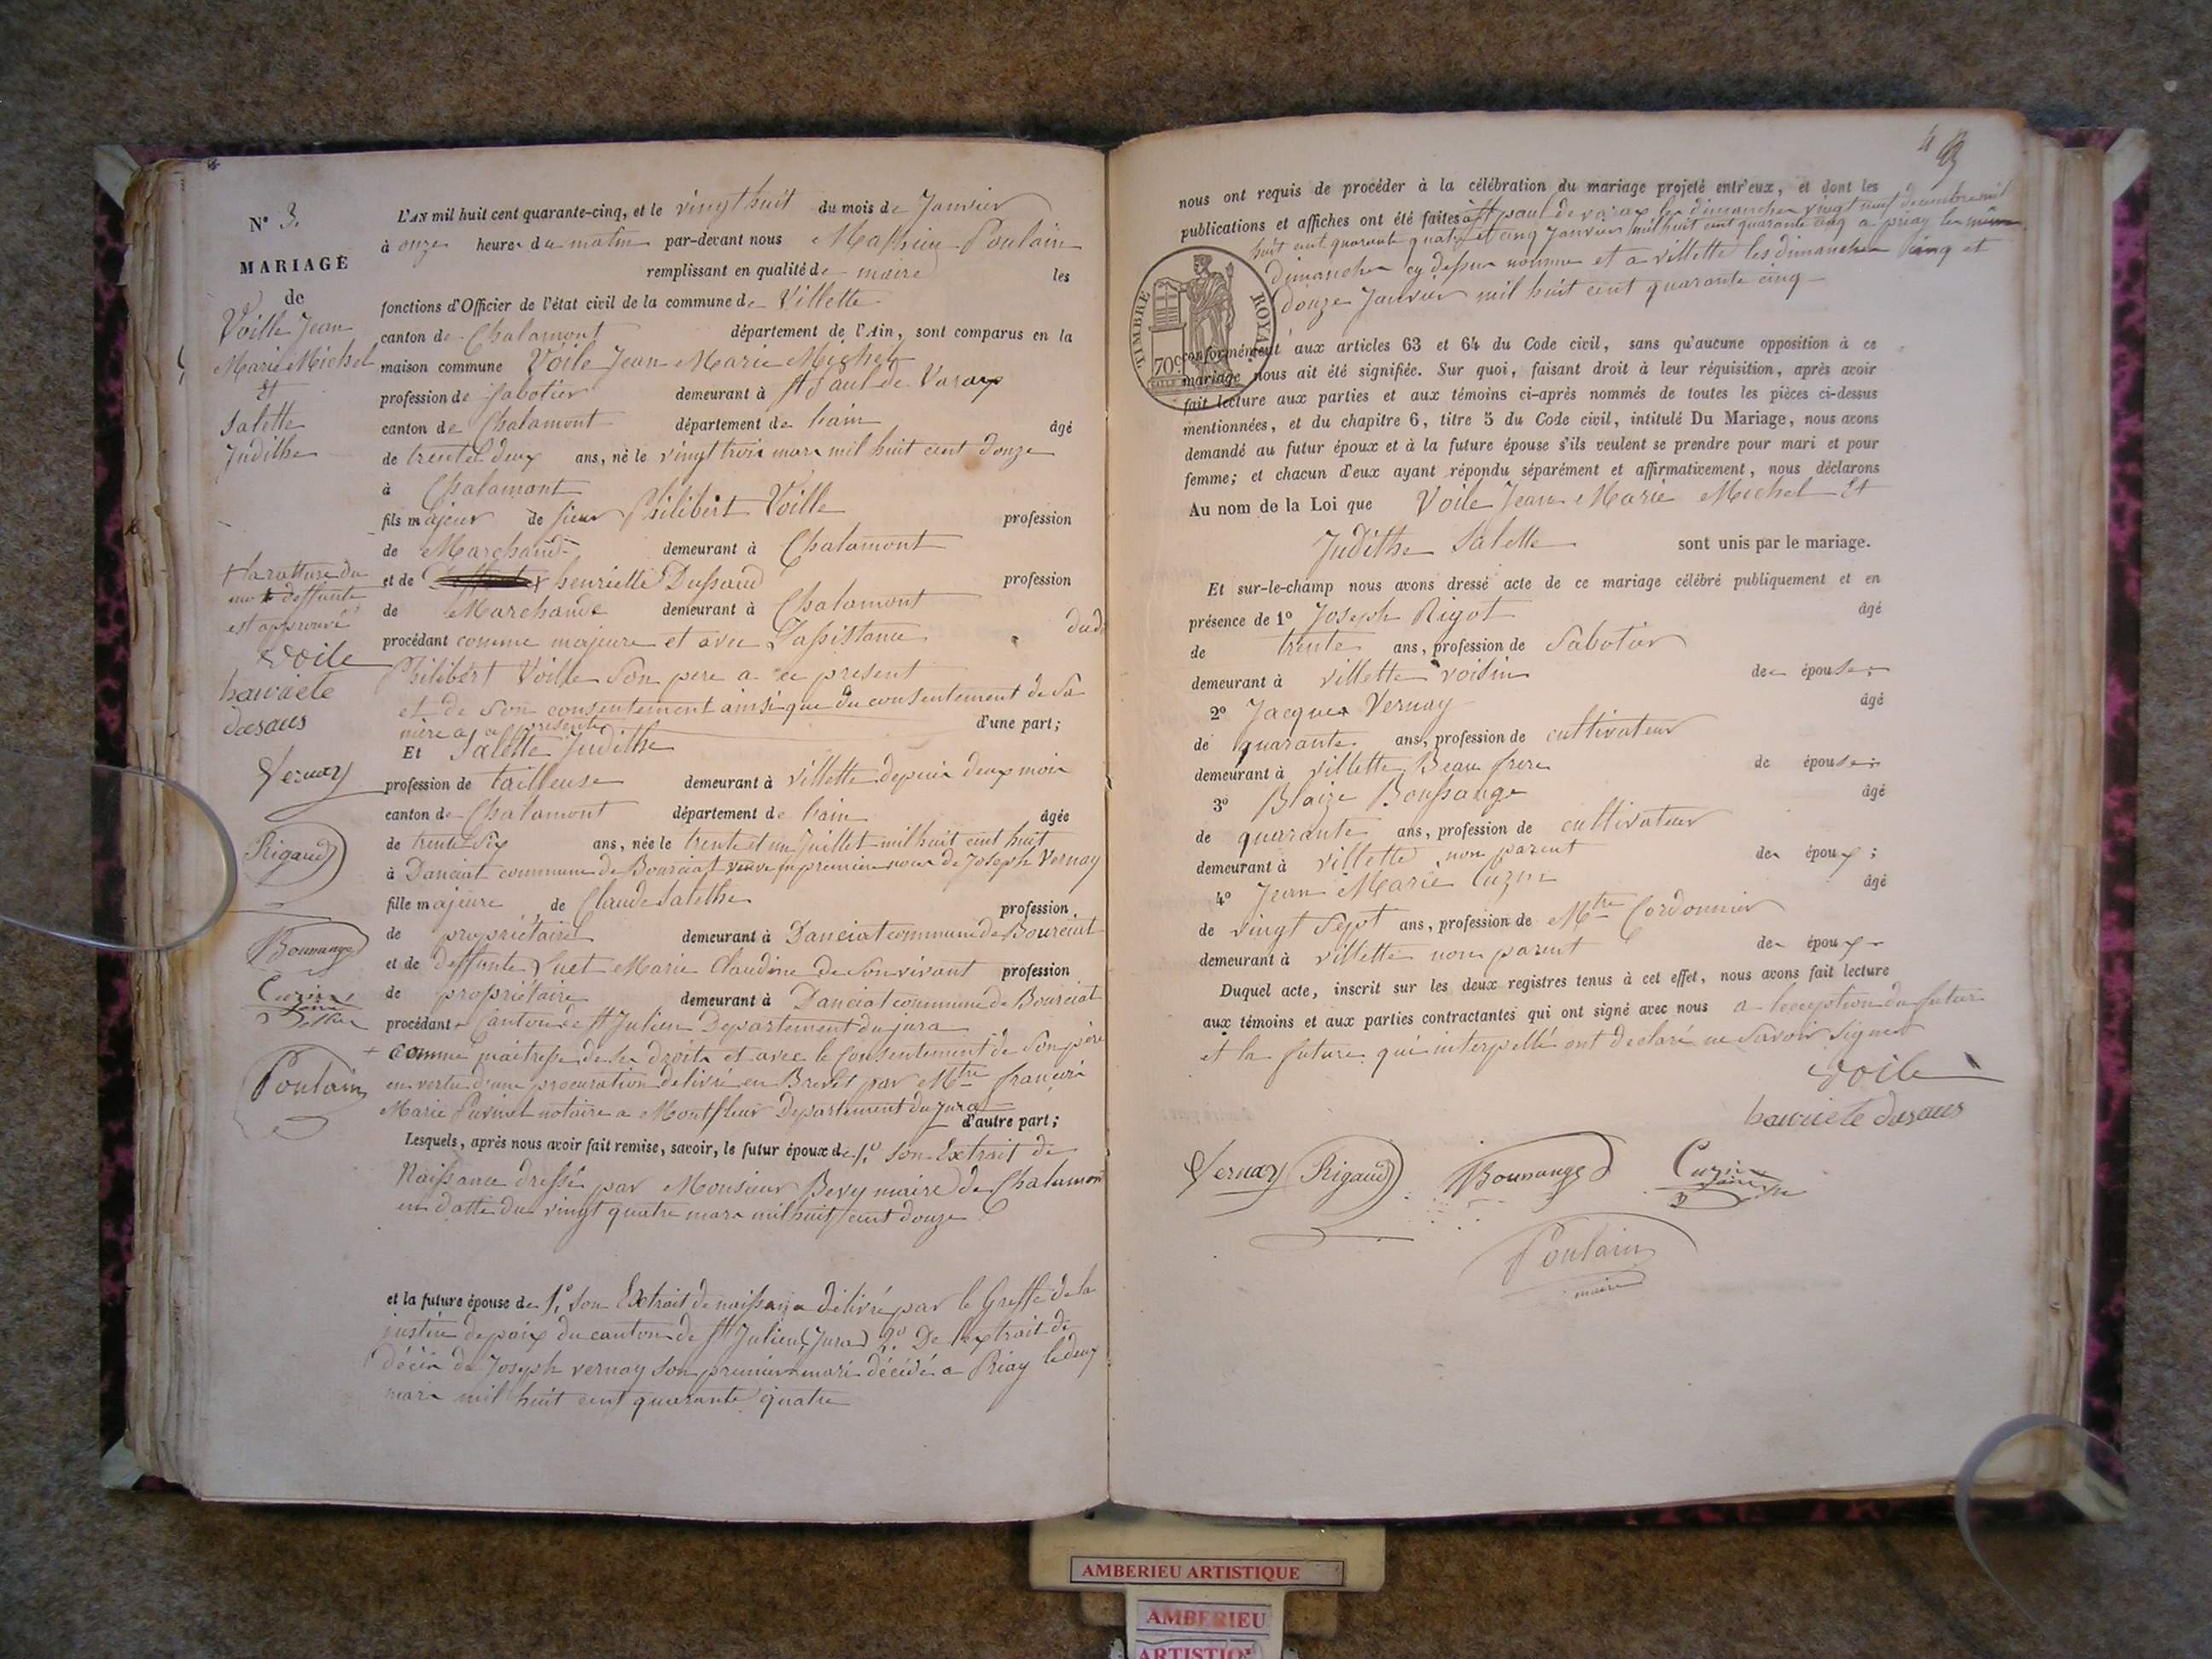 N° 3.
MARIAGE
de
Voille Jean
Marie Michel
Et
Salette
Judithe
+ la rature du
mot deffunte
est approuvé
voile
hawriete
dusaus
Vernay
Rigaud
Bounange
Cuzin
Poulain
L'AN mil huit cent quarante-cinq, et le vingt huit du mois de Janvier
à onze heures du matin par-devant nous Mathieu Poulain
remplissant en qualité de maire les
fonctions d'Officier de l'état civil de la commune de Villette
canton de Chalamont département de l'Ain, sont comparus en la
maison commune Voile Jean Marie Michel
profession de Sabotier demeurant à St paul de Varax
canton de Chalamont département de Lain âgé
de trente deux ans, né le vingt trois mars mil huit cent douze
à Chalamont
fils majeur de sieur Philibert Voille profession
de Marchand demeurant à Chalamont
et de + henriette Dussaud profession
de Marchande demeurant à Chalamont
procédant comme majeure et avec L'assistance dudi
Philibert Voille Son pere a ce present
et de Son consentement ainsi que du consentement de Sa
mère a ce presente d'une part;
Et Salette Judithe
profession de tailleuse demeurant à villette depuis deux mois
canton de Chalamont département de Lain âgée
de trente Six ans, née le trente et un Juillet mil huit cent huit
à Danciat commune de Bourciat veuve en premieres noces de Joseph Vernay
fille majeure de Claude Salethe profession
de propriétaire demeurant à Danciat commune de Bourciat
et de deffunte Luet Marie Claudine de Son vivant profession
de propriétaire demeurant à Danciat commune de Bourciat
procédant Canton de St Julien Departement du jura
+ comme maitresse de ses droits et avec le Consentement de Son père
en vertu d'une procuration delivré en Brevet par Mtre francois
Marie notaire a Montfleur Departement du jura
d'autre part;
Lesquels, après nous avoir fait remise, savoir, le futur époux de 1° Son Extrait de
Naissance dressé par Monsieur Bevy maire de Chalamont
en datte du vingt quatre mars mil huit cent douze
et la future épouse de 1° Son Extrait de naissance délivré par le Greffe de la
justice de paix du canton de St Julien (Jura) 2° De l'extrait de
décès de Joseph vernay Son premier mari décédé a Priay le deux
mars mil huit cent quarante quatre
nous ont requis de procéder à la célébration du mariage projeté entr'eux, et dont les
publications et affiches ont été faites a St paul de varax les dimanches vingt neuf decembre mil
huit cent quarante quatre et cinq Janvier mil huit cent quarante cinq a priay les
dimanches cy dessus nommé et a villette les dimanches cinq et
douze Janvier mil huit cent quarante cinq
TIMBRE ROYAL
70c
conformément aux articles 63 et 64 du Code civil, sans qu'aucune opposition à ce
mariage nous ait été signifiée. Sur quoi, faisant droit à leur réquisition, après avoir
fait lecture aux parties et aux témoins ci-après nommés de toutes les pièces ci-dessus
mentionnées, et du chapitre 6, titre 5 du Code civil, intitulé Du Mariage, nous avons
demandé au futur époux et à la future épouse s'ils veulent se prendre pour mari et pour
femme; et chacun d'eux ayant répondu séparément et affirmativement, nous déclarons
Au nom de la Loi que Voile Jean Marie Michel Et
Judithe Salette sont unis par le mariage.
Et sur-le-champ nous avons dressé acte de ce mariage célébré publiquement et en
présence de 1° Joseph Rigot âgé
de trente ans, profession de Sabotier
demeurant à villette voisin de épouse;
2° Jacques Vernay âgé
de quarante ans, profession de cultivateur
demeurant à villette Beau frere de épouse;
3° Blaize Boussange âgé
de quarante ans, profession de cultivateur
demeurant à villette non parent des époux;
4° Jean Marie Cuzin âgé
de vingt Sept ans, profession de Mtre Cordonnier
demeurant à villette non parent des époux
Duquel acte, inscrit sur les deux registres tenus à cet effet, nous avons fait lecture
aux témoins et aux parties contractantes qui ont signé avec nous a lexception du futur
et la future qui interpellé ont declaré ne Savoir Signer
voile
hawriete dusaus
Vernay Rigaud Bounange Cuzin
Poulain
maire
AMBERIEU ARTISTIQUE
AMBERIEU
ARTISTIQ